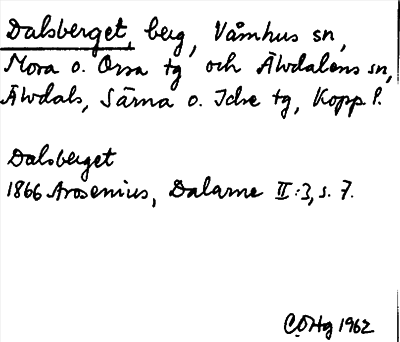 Dalsberget, berg, Våmhus sn,
Mora o. Orsa tg och Älvdalens sn,
Älvdals, Särna o. Idre tg, Kopp l.
Dalsberget
1866 Arosenius, Dalarne II:3, s. 7.
COHg 1962